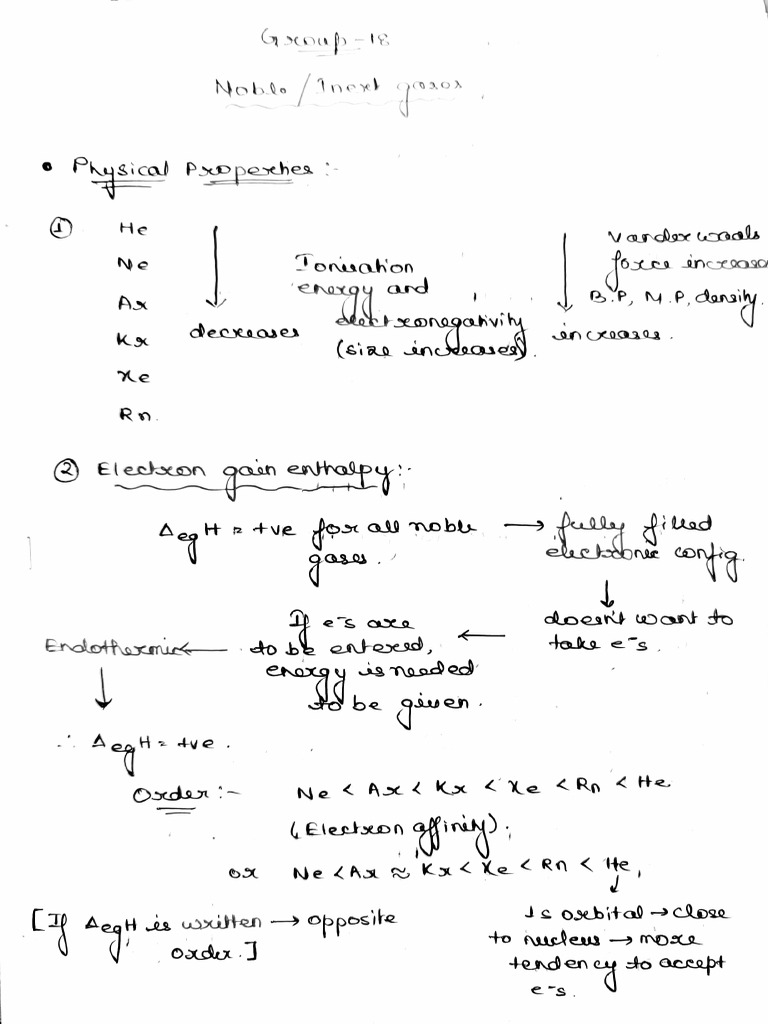 Group-18
Noble/Inert gases
• Physical Properties :-
① He
Ne
Ar
Kr
Xe
Rn.
↓ decreases
Ionisation
energy and
electronegativity
(size increases).
↓ increases.
Vanderwaals
force increases
B.P, M.P, density.
② Electron gain enthalpy:-
ΔegH = +ve for all noble gases. → fully filled
electronic config.
↓
doesn't want to
take e⁻s.
←
If e⁻s are
to be entered,
energy is needed
to be given.
Endothermic ←
↓
∴ ΔegH = +ve.
Order :- Ne < Ar < Kr < Xe < Rn < He
(Electron affinity).
or Ne < Ar ≈ Kr < Xe < Rn < He,
↓
1s orbital → close
to nucleus → more
tendency to accept
e⁻s.
[If ΔegH is written → opposite
order.]